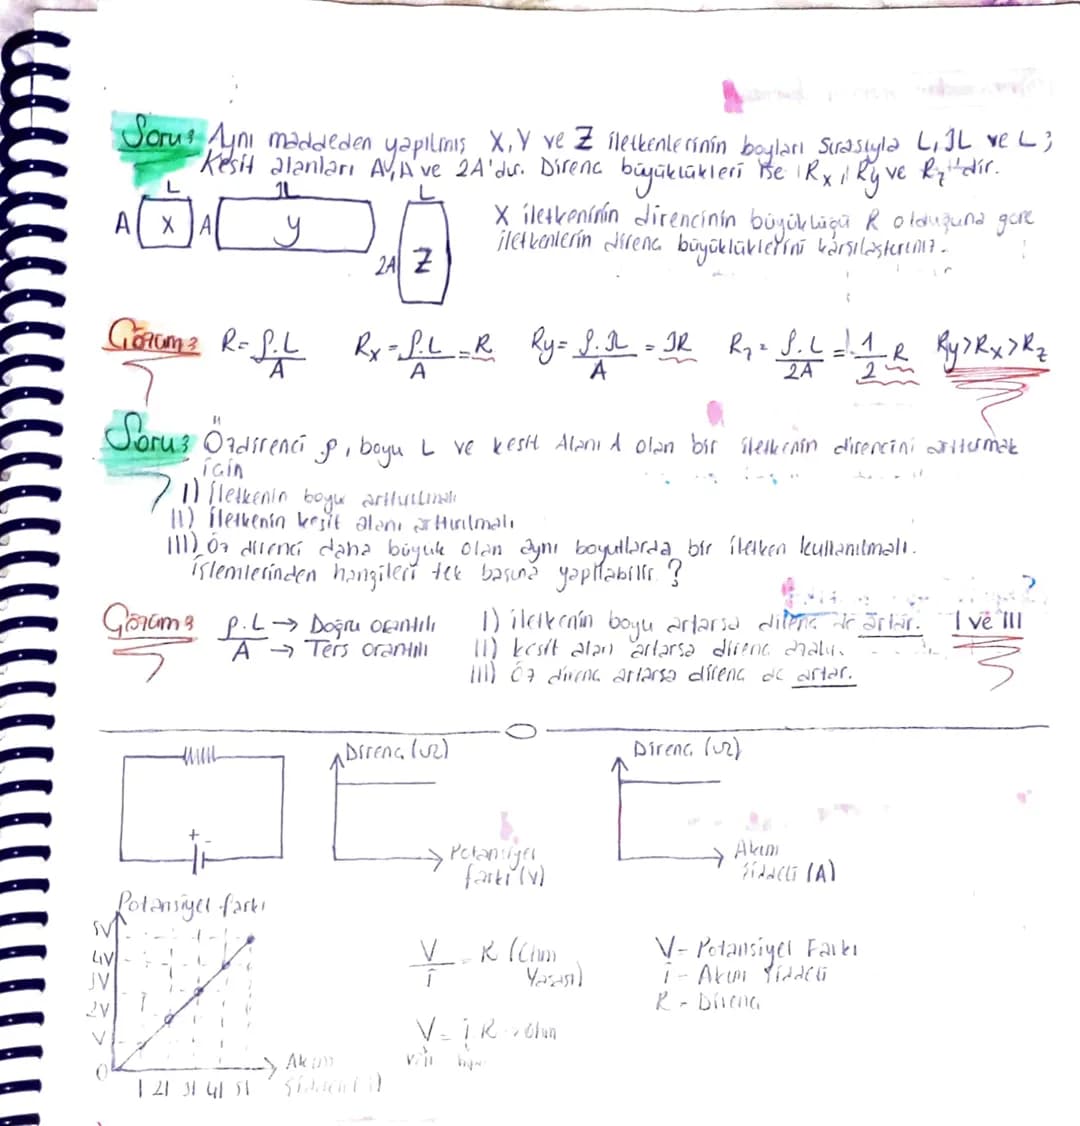 Soru: Aynı maddeden yapılmış X, Y ve Z iletkenlerinin boyları sırasıyla L, 3L ve L;
Kesit alanları A, A ve 2A'dır. Direnç büyüklükleri ise Rx, Ry ve Rz'dir.
L 3L L
A X A y 2A Z
X iletkeninin direncinin büyüklüğü R olduğuna göre
iletkenlerin direnç büyüklüklerini karşılaştırınız.
Çözüm: R = ρ.L/A Rx = ρ.L/A = R Ry = ρ.3L/A = 3R Rz = ρ.L/2A = 1/2 R Ry>Rx>Rz
Soru: Özdirenci ρ, boyu L ve kesit Alanı A olan bir iletkenin direncini arttırmak
için
I) İletkenin boyu arttırılmalı
II) İletkenin kesit alanı arttırılmalı
III) Öz direnci daha büyük olan aynı boyutlarda bir iletken kullanılmalı.
işlemlerinden hangileri tek başına yapılabilir?
Çözüm: ρ.L → Doğru orantılı
A → Ters orantılı
I) iletkenin boyu artarsa direnç de artar. I ve III
II) kesit alan artarsa direnç azalır.
III) Öz direnç artarsa direnç de artar.
+ -
Direnç (Ω)
Potansiyel
farkı (V)
Direnç (Ω)
Akım
Şiddeti (A)
Potansiyel farkı
5V
4V
3V
2V
V
0
I 2I 3I 4I 5I
Akım
Şiddeti
V/i = R (Ohm
Yasası)
V = i R
V - Potansiyel Farkı
i - Akım Şiddeti
R - Direnç